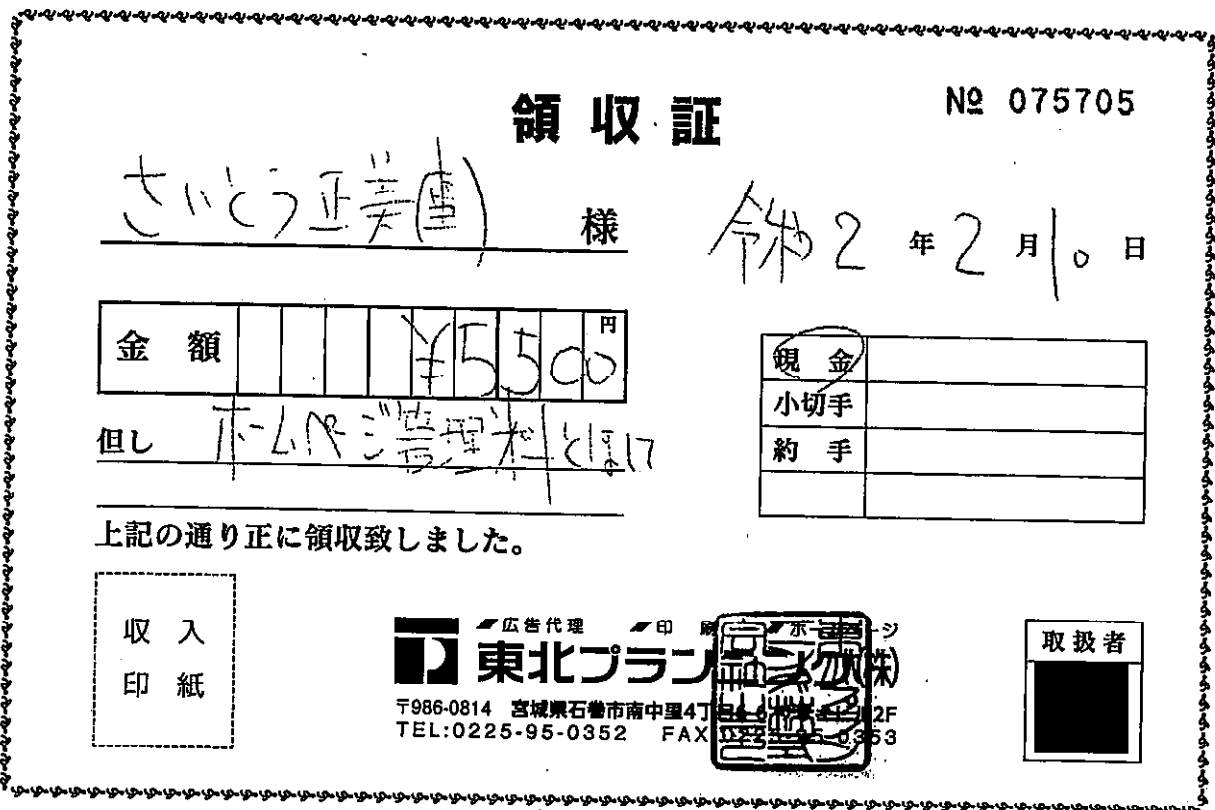 領収証
№ 075705
さいとう正美 様
令和2年2月10日
金額 ¥5500円
現金
小切手
約手
但し ホームページ管理料として
上記の通り正に領収致しました。
収入
印紙
取扱者
広告代理 印刷 ホームページ
東北プランニング(株)
〒986-0814 宮城県石巻市南中里4丁目
TEL:0225-95-0352 FAX 0225-95-0353